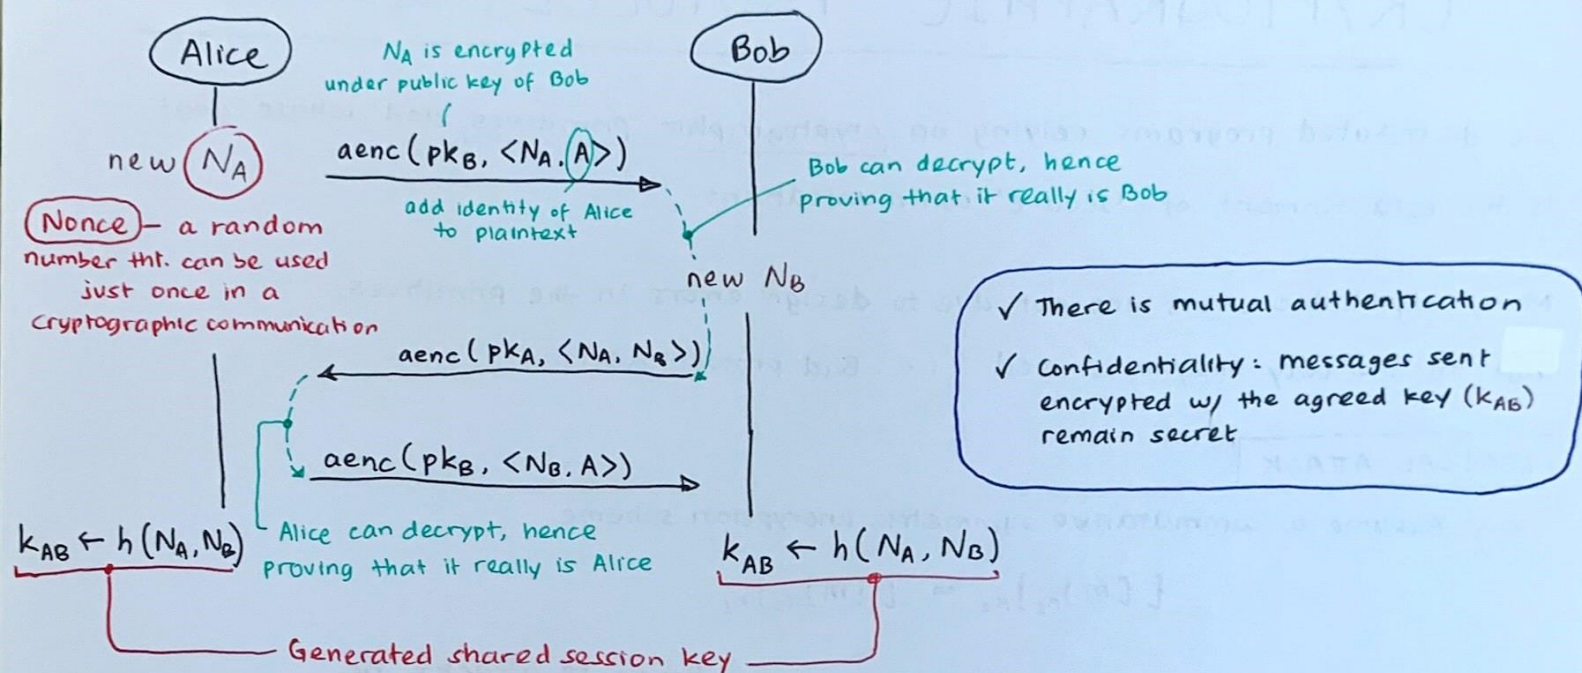 Alice
Bob
NA is encrypted
under public key of Bob
new NA
aenc(pkB, <NA, A>)
Bob can decrypt, hence
proving that it really is Bob
add identity of Alice
to plaintext
Nonce – a random
number tht. can be used
just once in a
cryptographic communication
new NB
aenc(pkA, <NA, NB>)
✓ There is mutual authentication
✓ Confidentiality: messages sent
encrypted w/ the agreed key (kAB)
remain secret
aenc(pkB, <NB, A>)
Alice can decrypt, hence
proving that it really is Alice
kAB ← h(NA, NB)
kAB ← h(NA, NB)
Generated shared session key